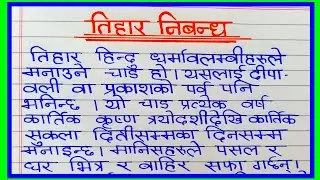 तिहार निबन्ध
तिहार हिन्दु धर्मावलम्बीहरूले
मनाउने चाड हो। यसलाई दीपा-
वली वा प्रकाशको पर्व पनि
भनिन्छ । यो चाड प्रत्येक वर्ष
कार्तिक कृष्ण त्रयोदशीदेखि कार्तिक
सुकला द्वितीसम्मका दिनसम्म
मनाइन्छ । मानिसहरुले पसल र
घर भित्र र वाहिर सफा गर्छन् ।